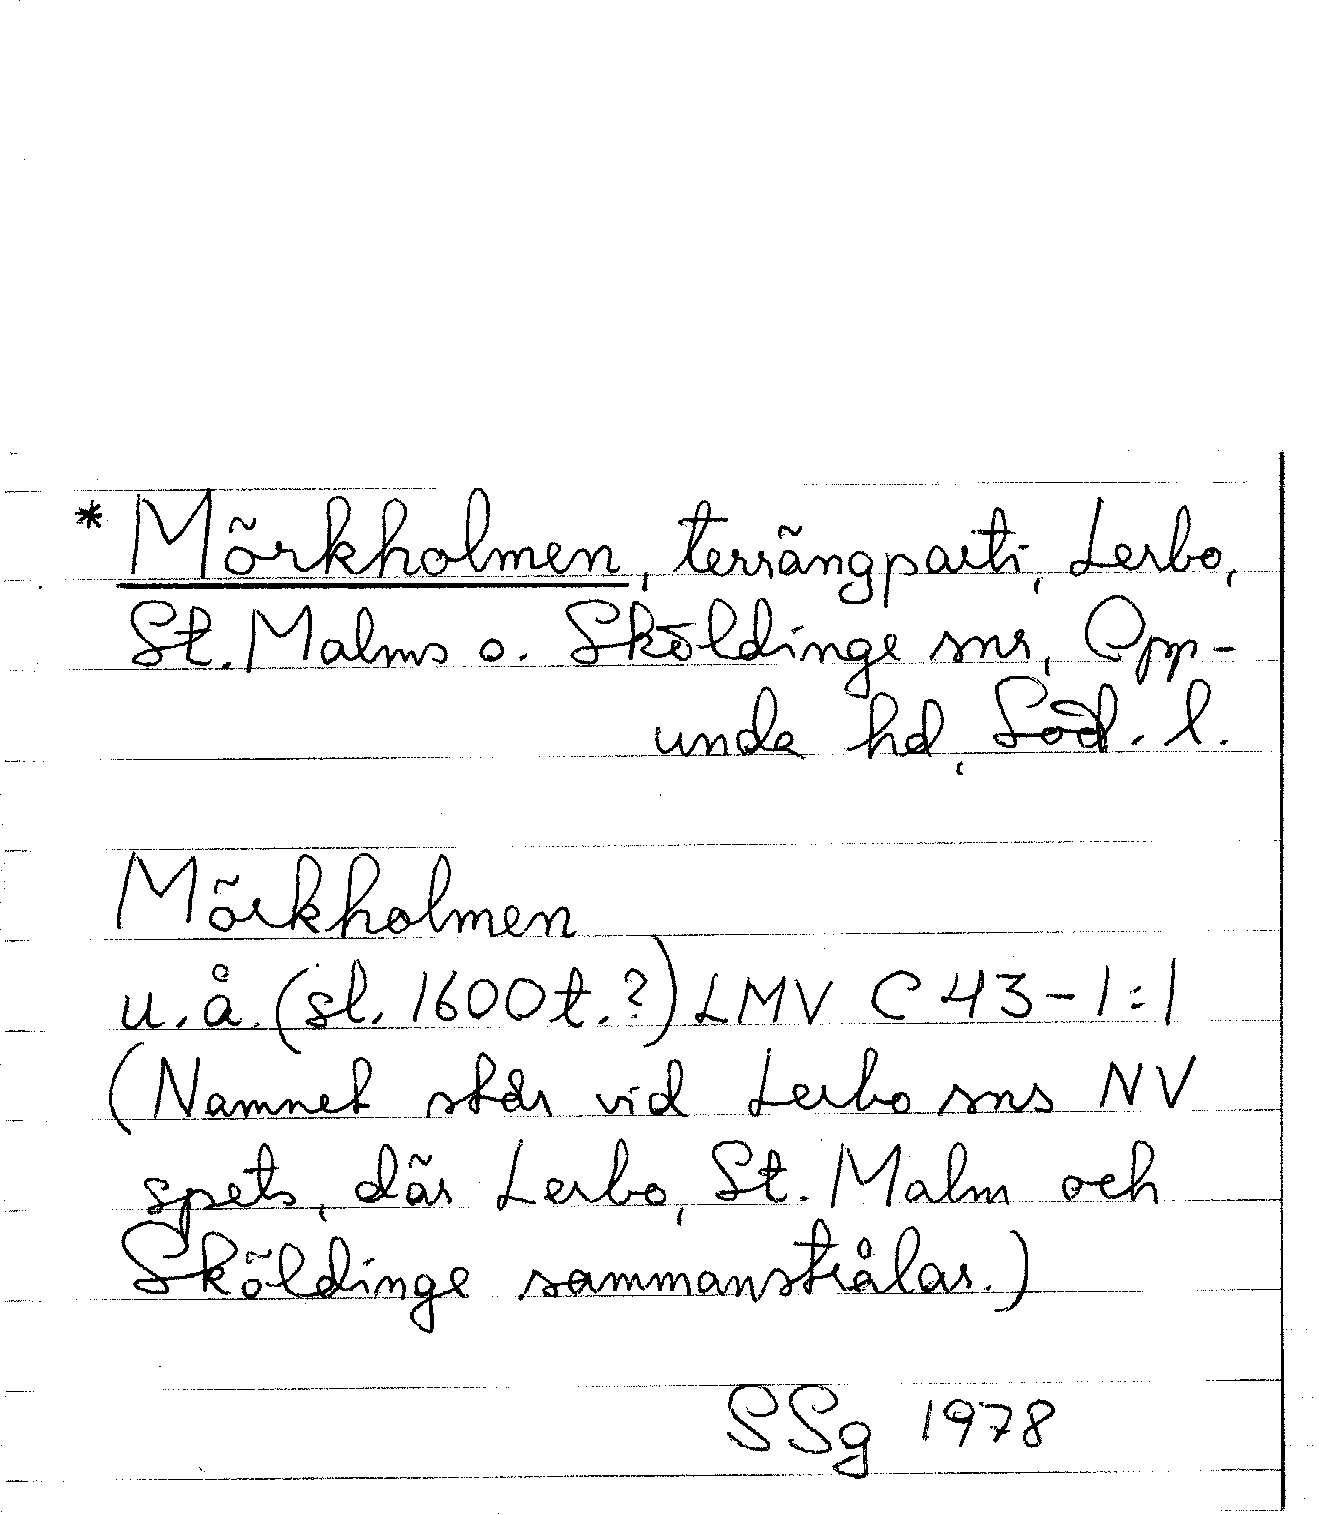 * Mörkholmen, terrängparti, Lerbo,
St. Malms o. Sköldinge snr, Opp-
unda hd, Söd. l.
Mörkholmen
u.å. (sl. 1600t.?) LMV C 43-1:1
(Namnet står vid Lerbo sns NV
spets, där Lerbo, St. Malm och
Sköldinge sammanstrålar.)
SSg 1978